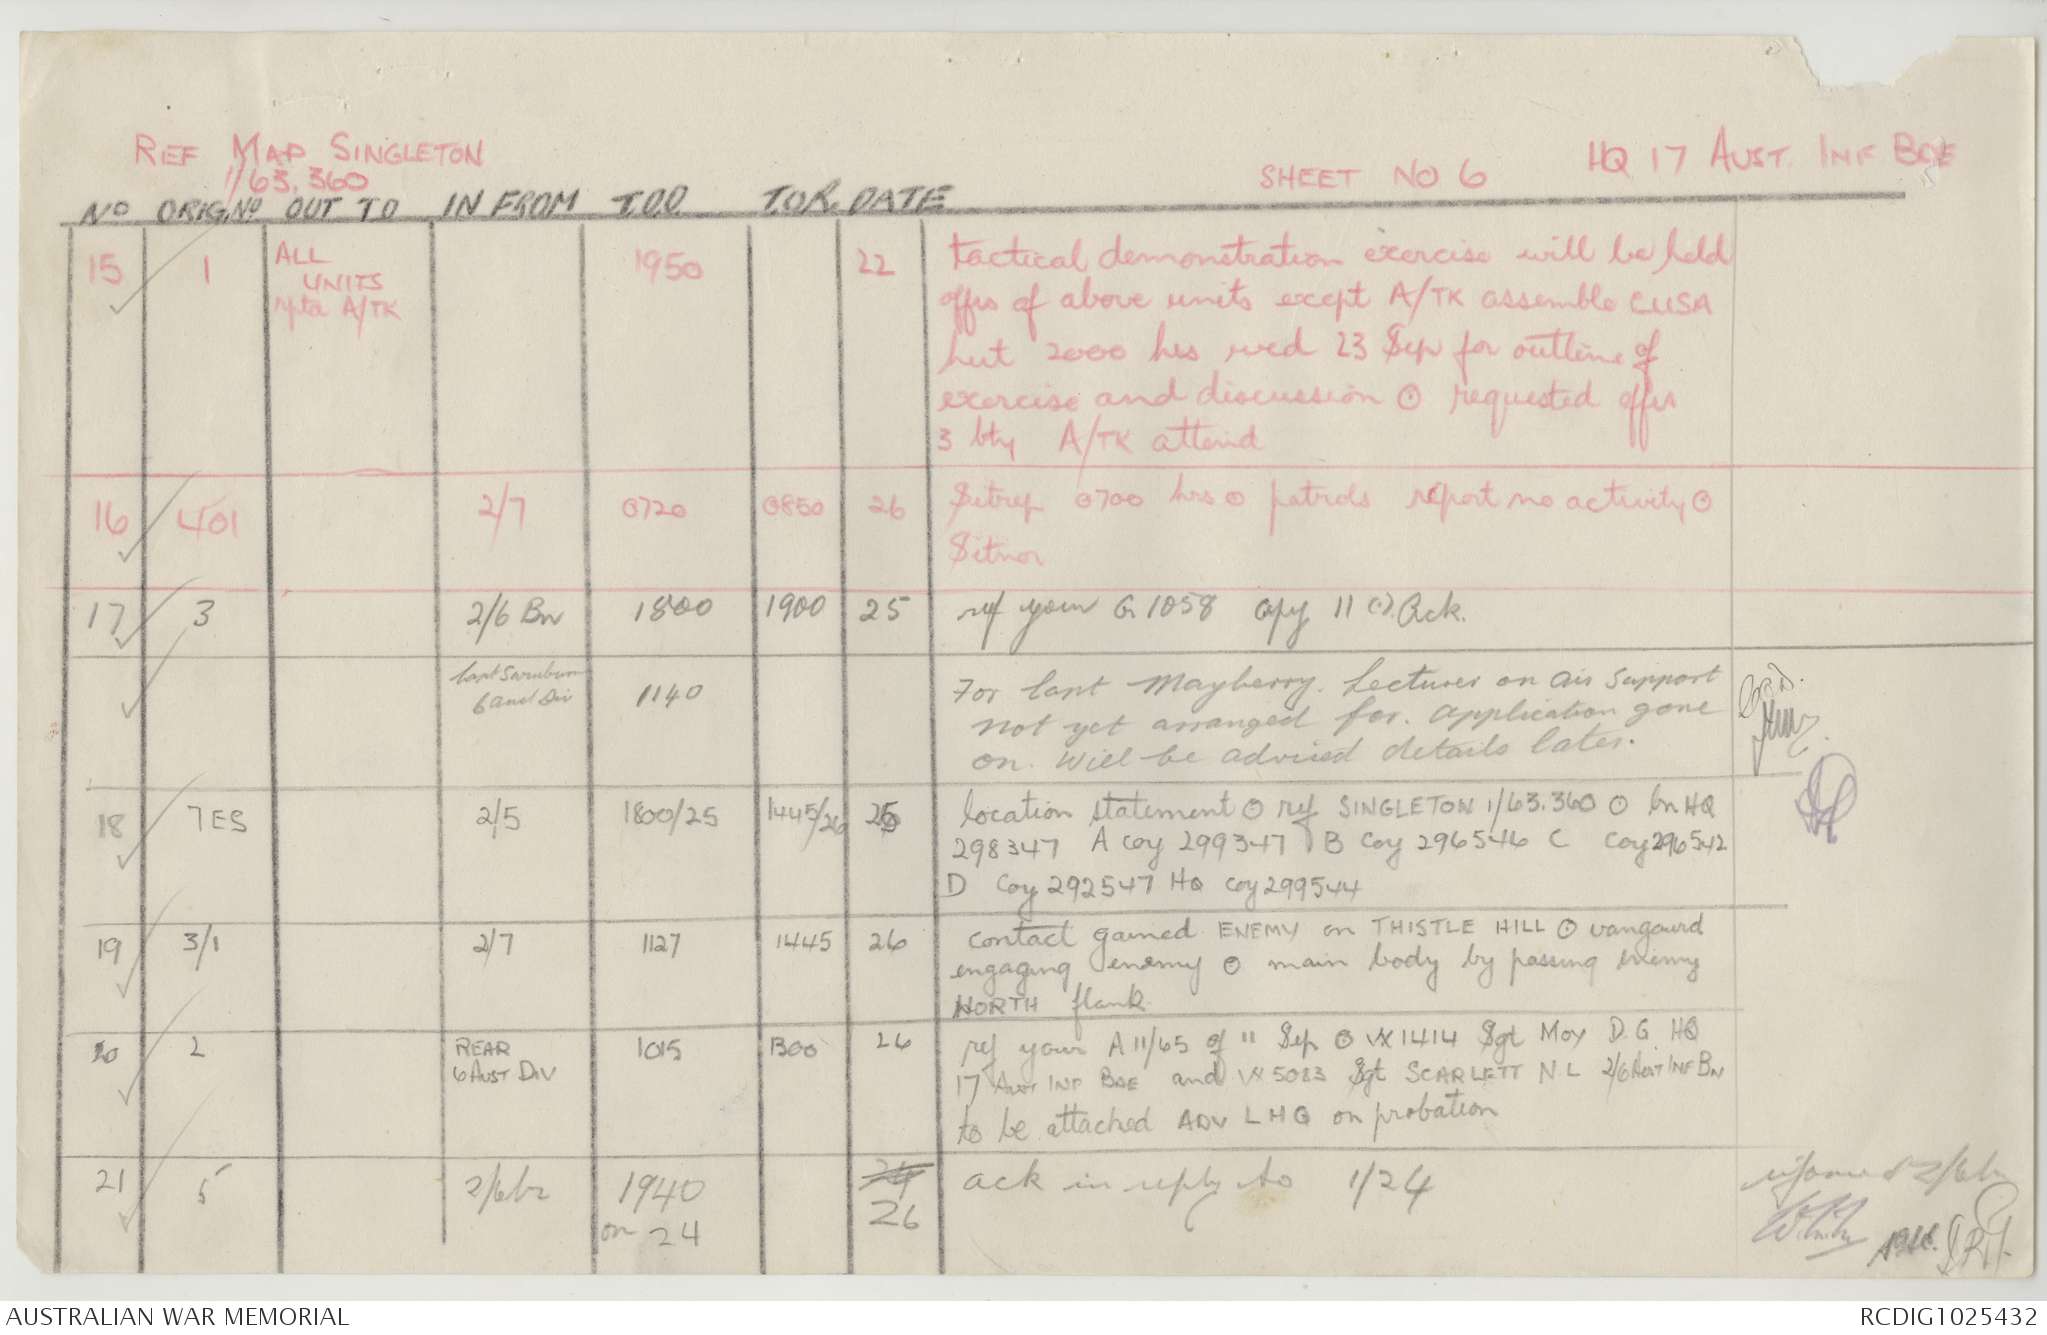 REF MAP SINGLETON
1/63,360
SHEET NO 6
HQ 17 AUST. INF BDE
NO ORIG.NO OUT TO IN FROM T.O.O T.O.R. DATE
15 1 ALL UNITS rpta A/TK 1950 22 tactical demonstration exercise will be held
offrs of above units except A/TK assemble CUSA
hut 2000 hrs wed 23 Sep for outline of
exercise and discussion ⊙ requested offrs
3 bty A/TK attend
16 401 2/7 0720 0850 26 Sitrep 0700 hrs ⊙ patrols report no activity ⊙
Sitnor
17 3 2/6 Bn 1800 1900 25 ref your G 1058 copy 11 (.) Ack.
Capt 6 Aust Div 1140 For Capt Mayberry. Lectures on air support
not yet arranged for. Application gone
on. Will be advised details later.
18 7ES 2/5 1800/25 1445/26 26 location statement ⊙ ref SINGLETON 1/63.360 ⊙ bn HQ
298347 A coy 299347 B Coy 296546 C Coy 296542
D Coy 292547 HQ coy 299544
19 3/1 2/7 1127 1445 26 contact gained ENEMY on THISTLE HILL ⊙ vangaurd
engaging enemy ⊙ main body by passing enemy
NORTH flank
20 2 REAR 6 AUST DIV 1015 1300 26 ref your A 11/65 of 11 Sep ⊙ VX1414 Sgt MOY D.G. HQ
17 AUST INF BDE and VX5083 Sgt SCARLETT N L 2/6 AUST INF BN
to be attached ADV L H Q on probation
21 5 2/6 bn 1940 on 24 24 26 ack in reply to 1/24
informed 2/6 bn
AUSTRALIAN WAR MEMORIAL
RCDIG1025432